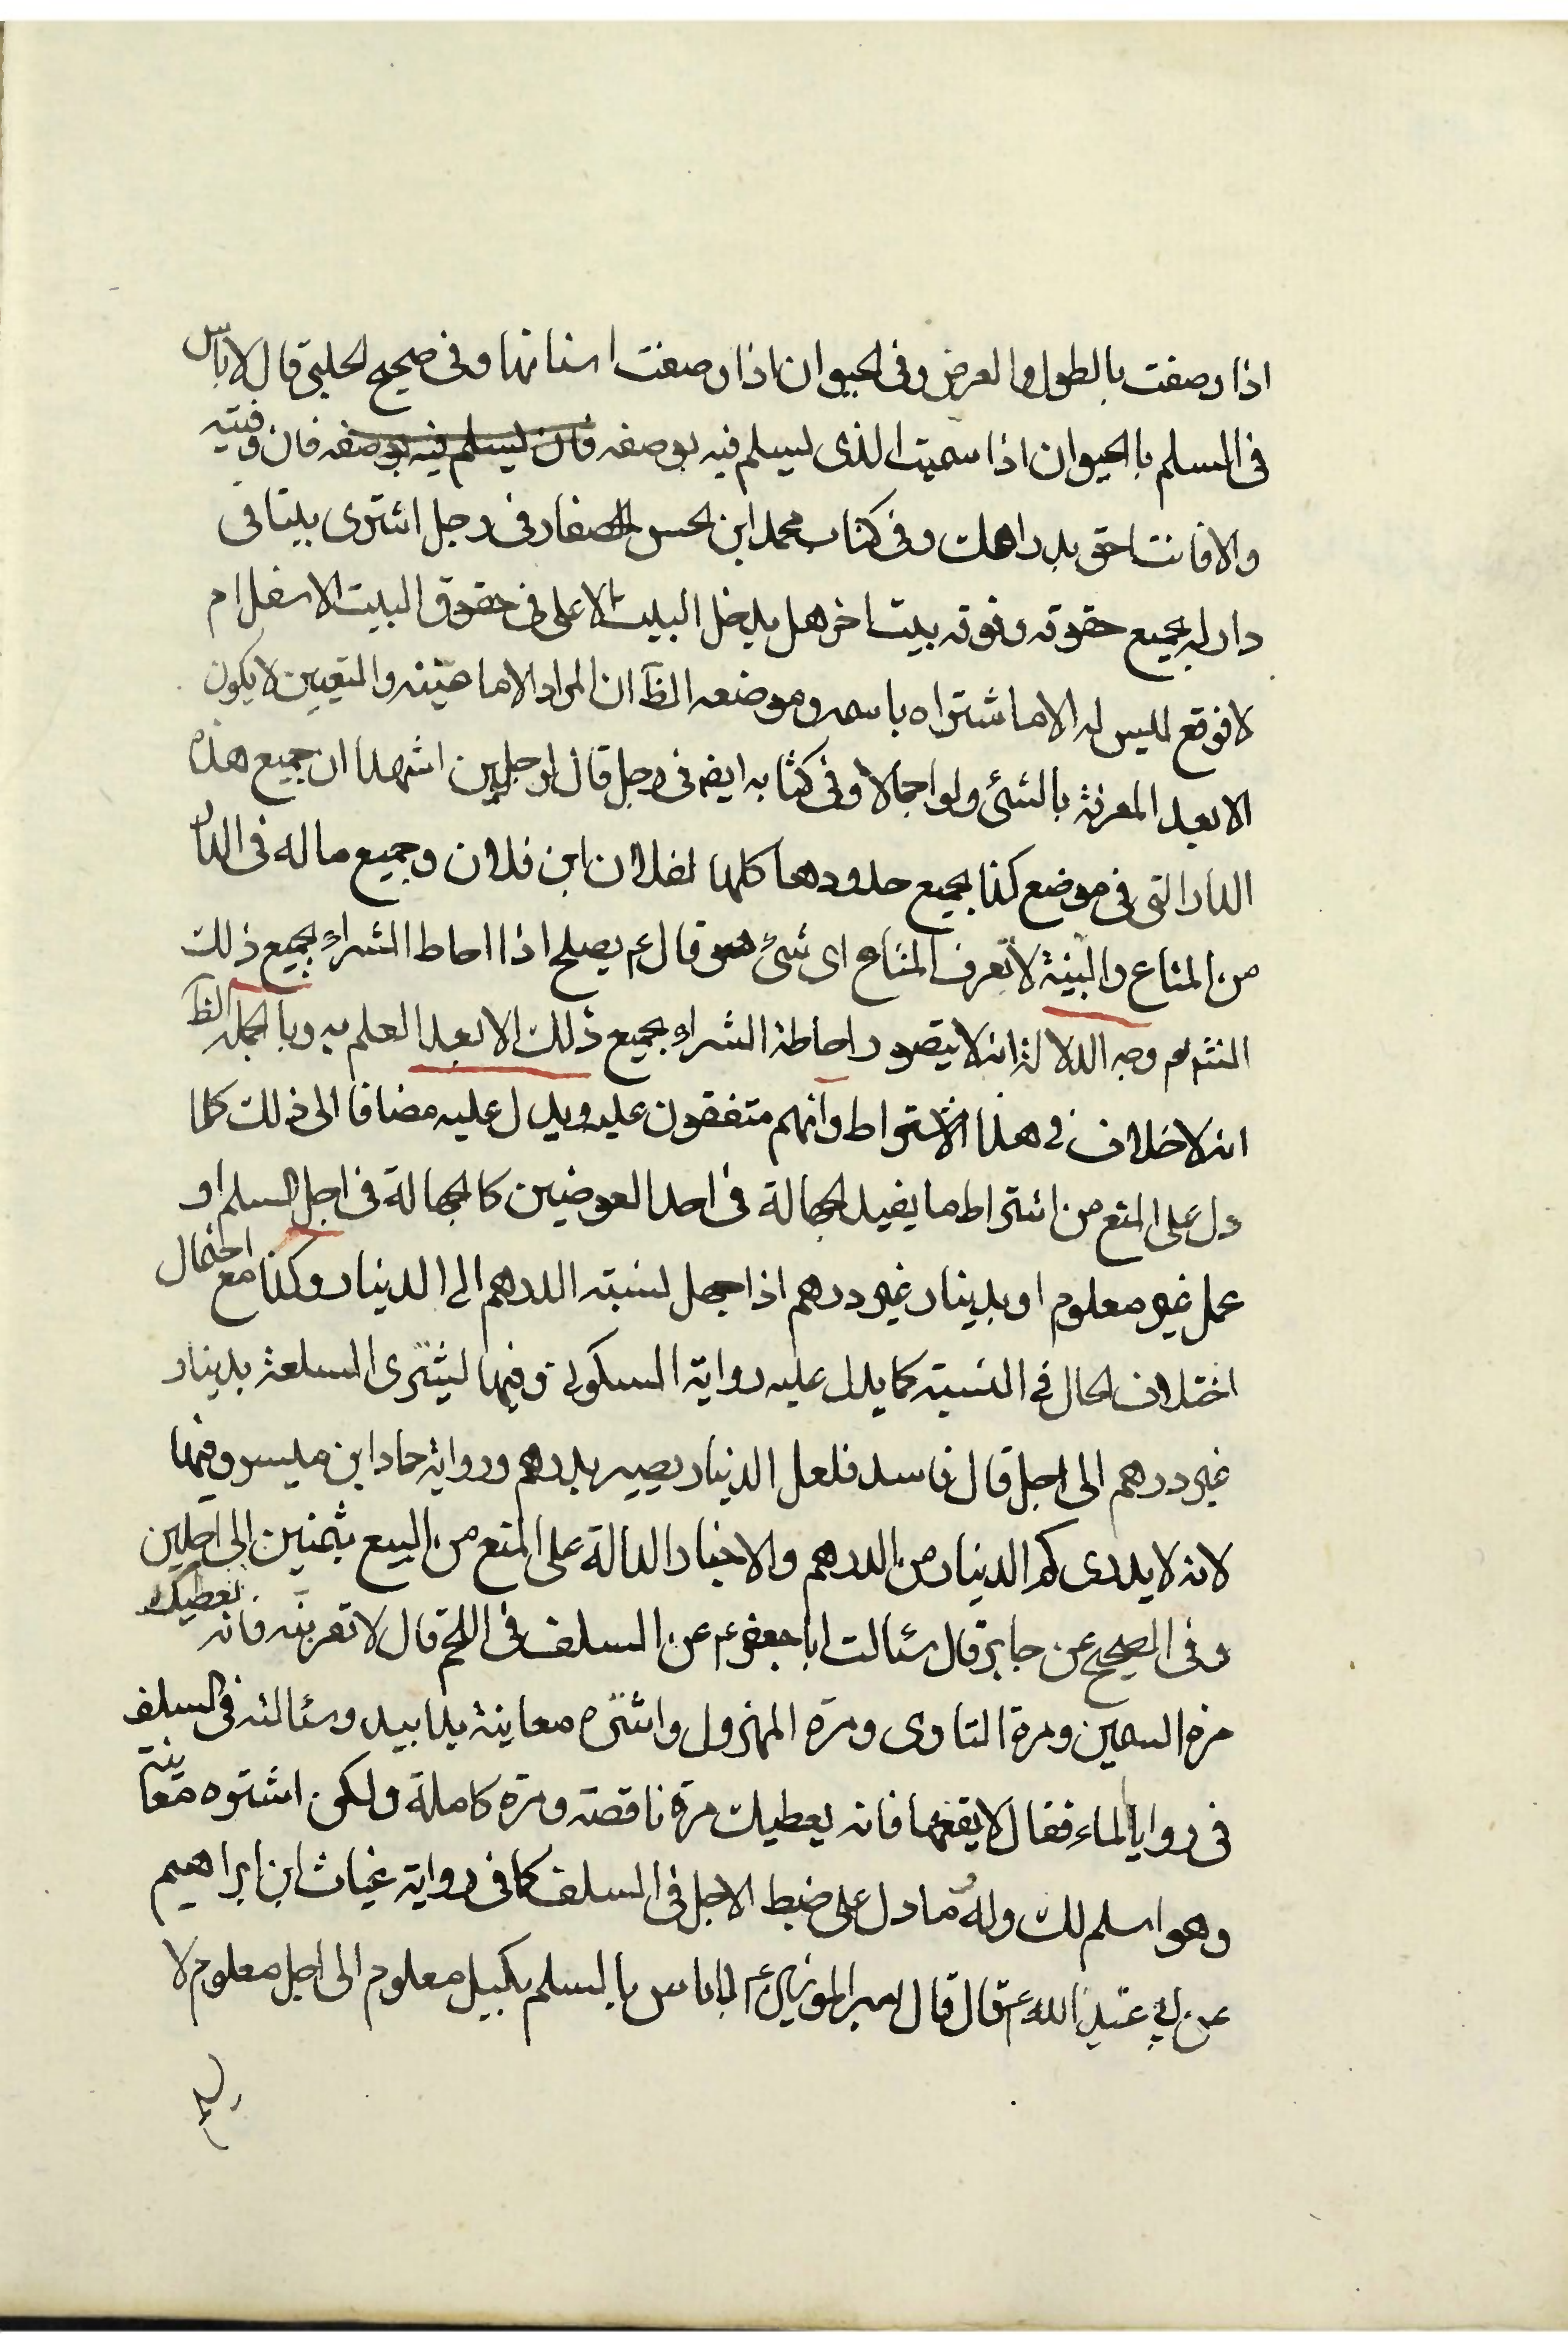 اذا وصفت بالطول والعرض وفى الحيوان اذا وصفت اسنانها وفى صحيح الحلبى قال لا باس
فى السلم بالحيوان اذا سميت الذى يسلم فيه بوصفه فان يسلم فيه بوصفه فان وفيته
والا فانت احق بدراهمك وفى كتاب محمد ابن الحسن الصفار فى رجل اشترى بيتا فى
دار له بجميع حقوقه وفوقه بيت اخر هل يدخل البيت الاعلى فى حقوق البيت الاسفل ام
لا فوقع ليس له الا ما اشتراه باسمه وموضعه الظ ان المراد الا ما عينه والتعيين لا يكون
الا بعد المعرفة بالشئ ولو اجمالا وفى كتابه ايضا فى رجل قال لرجلين اشهدا ان جميع هذه
الدار التى فى موضع كذا بجميع حدودها كلها لفلان ابن فلان وجميع ماله فى الدار
من المتاع والبينة لا تعرف المتاع اى شئ هو قال ع يصلح اذا احاط الشراء بجميع ذلك
انش وجه الدلالة انه لا يتصور احاطة الشراء بجميع ذلك الا بعد العلم به وبالجملة الظ
انه لا خلاف فى هذا الاشتراط وانهم متفقون عليه ويدل عليه مضافا الى ذلك كلما
دل على المنع من اشتراط ما يفيد الجهالة فى احد العوضين كالجهالة فى اجل السلم او
عمل غير معلوم او بدينار غير درهم اذا جهل نسبة الدرهم الى الدينار وكذا مع احتمال
اختلاف الحال فى النسبة كما يدل عليه رواية السكونى وفيها يشترى السلعة بدينار
غير درهم الى اجل قال فاسد فلعل الدينار يصير بدرهم ورواية حماد ابن ميسر وفيها
لانه لا يدرى كم الدينار من الدرهم والاخبار الدالة على المنع من البيع بثمنين الى اجلين
وفى الصحيح عن جابر قال سئالت ابا جعفر ع عن السلف فى اللحم قال لا تقربنه فانه يعطيك
مرة السمين ومرة التاوى ومرة المهزول واشتره معاينة يدا بيد وسئالته فى السلف
فى روايا الماء فقال لا يقعها فانه يعطيك مرة ناقصة ومرة كاملة ولكن اشتره معاينة
وهو اسلم لك وله وما دل على ضبط الاجل فى السلف كما فى رواية غياث ابن ابراهيم
عن ابى عبد الله ع قال قال امير المؤمنين ع لا باس بالسلم بكيل معلوم الى اجل معلوم لا